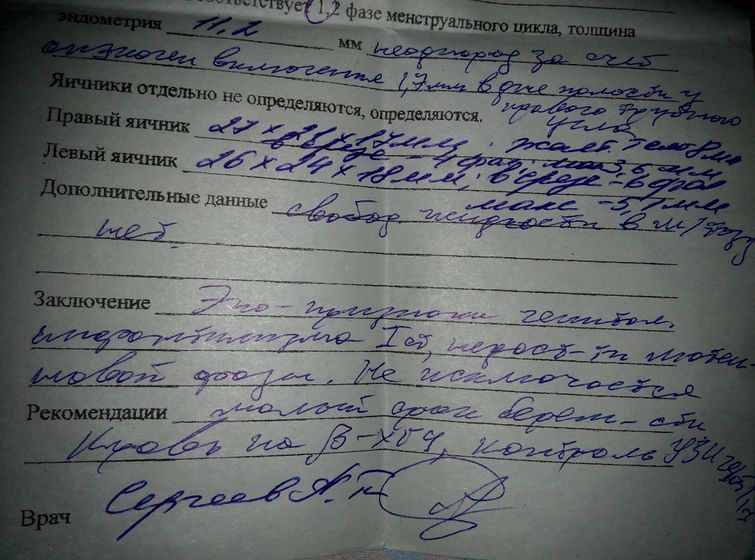 соответствует 1,2 фазе менструального цикла, толщина
эндометрия 11.2 мм неоднород за счет
анэхоген включения 1,7 мм в дне полости у
правого трубного
угла
Яичники отдельно не определяются, определяются.
Правый яичник 27 х 21 х 17 мм, желт. тело 8 мм
в срезе - 4 фол, макс 3,6 мм
Левый яичник 26 х 24 х 18 мм, в срезе - 6 фол
макс - 5,1 мм
Дополнительные данные свобод жидкости в м/тазу
нет.
Заключение Эхо-признаки генитал.
инфантилизма I ст, недост-ти лютеи-
новой фазы. Не исключается
малый срок берем-сти
Рекомендации
Кровь на β-ХГЧ, контроль УЗИ через
Врач Сергеев А.